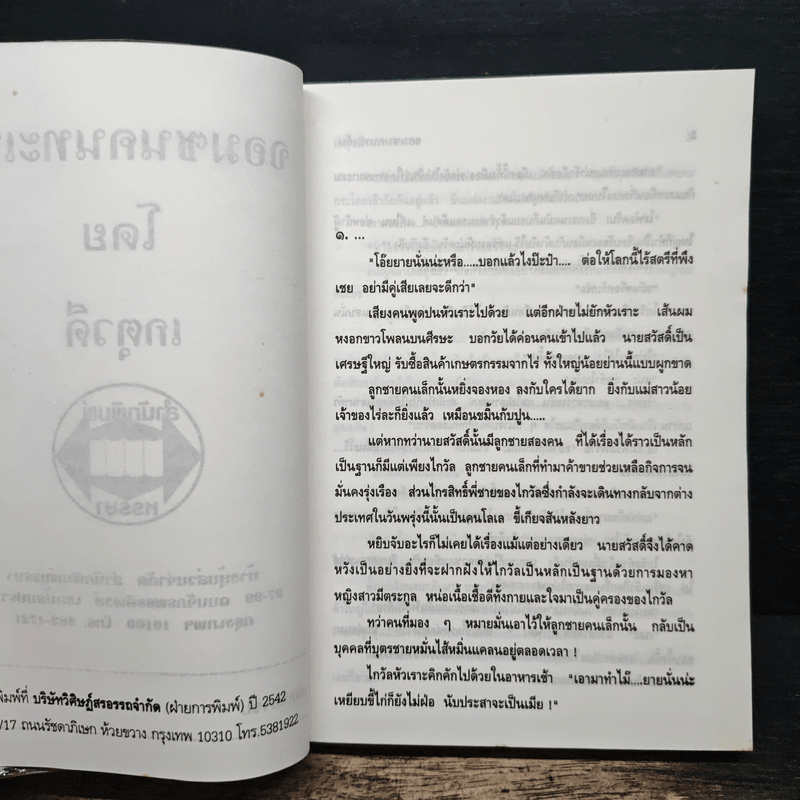 พิมพ์ที่ บริษัทวิศิษฎ์สรอรรถจำกัด (ฝ่ายการพิมพ์) ปี 2542
/17 ถนนรัชดาภิเษก ห้วยขวาง กรุงเทพ 10310 โทร.5381922
๑. ...
"โอ๊ยยายนั่นน่ะหรือ.....บอกแล้วไงป๊ะป๋า.... ต่อให้โลกนี้ไร้สตรีที่พึง
เชย อย่ามีคู่เสียเลยจะดีกว่า"
เสียงคนพูดปนหัวเราะไปด้วย แต่อีกฝ่ายไม่ยักหัวเราะ เส้นผม
หงอกขาวโพลนบนศีรษะ บอกวัยได้ค่อนคนเข้าไปแล้ว นายสวัสดิ์เป็น
เศรษฐีใหญ่ รับซื้อสินค้าเกษตรกรรมจากไร่ ทั้งใหญ่น้อยย่านนี้แบบผูกขาด
ลูกชายคนเล็กนั้นหยิ่งจองหอง ลงกับใครได้ยาก ยิ่งกับแม่สาวน้อย
เจ้าของไร่ละก็ยิ่งแล้ว เหมือนขมิ้นกับปูน.....
แต่หากทว่านายสวัสดิ์นั้นมีลูกชายสองคน ที่ได้เรื่องได้ราวเป็นหลัก
เป็นฐานก็มีแต่เพียงไกวัล ลูกชายคนเล็กที่ทำมาค้าขายช่วยเหลือกิจการจน
มั่นคงรุ่งเรือง ส่วนไกรสิทธิ์พี่ชายของไกวัลซึ่งกำลังจะเดินทางกลับจากต่าง
ประเทศในวันพรุ่งนี้นั้นเป็นคนโลเล ขี้เกียจสันหลังยาว
หยิบจับอะไรก็ไม่เคยได้เรื่องแม้แต่อย่างเดียว นายสวัสดิ์จึงได้คาด
หวังเป็นอย่างยิ่งที่จะฝากฝังให้ไกวัลเป็นหลักเป็นฐานด้วยการมองหา
หญิงสาวมีตระกูล หน่อเนื้อเชื้อดีทั้งกายและใจมาเป็นคู่ครองของไกวัล
ทว่าคนที่มอง ๆ หมายมั่นเอาไว้ให้ลูกชายคนเล็กนั้น กลับเป็น
บุคคลที่บุตรชายหมั่นไส้หมิ่นแคลนอยู่ตลอดเวลา !
ไกวัลหัวเราะคิกคักไปด้วยในอาหารเช้า "เอามาทำไม๊....ยายนั่นน่ะ
เหยียบขี้ไก่ก็ยังไม่ฝ่อ นับประสาจะเป็นเมีย !"